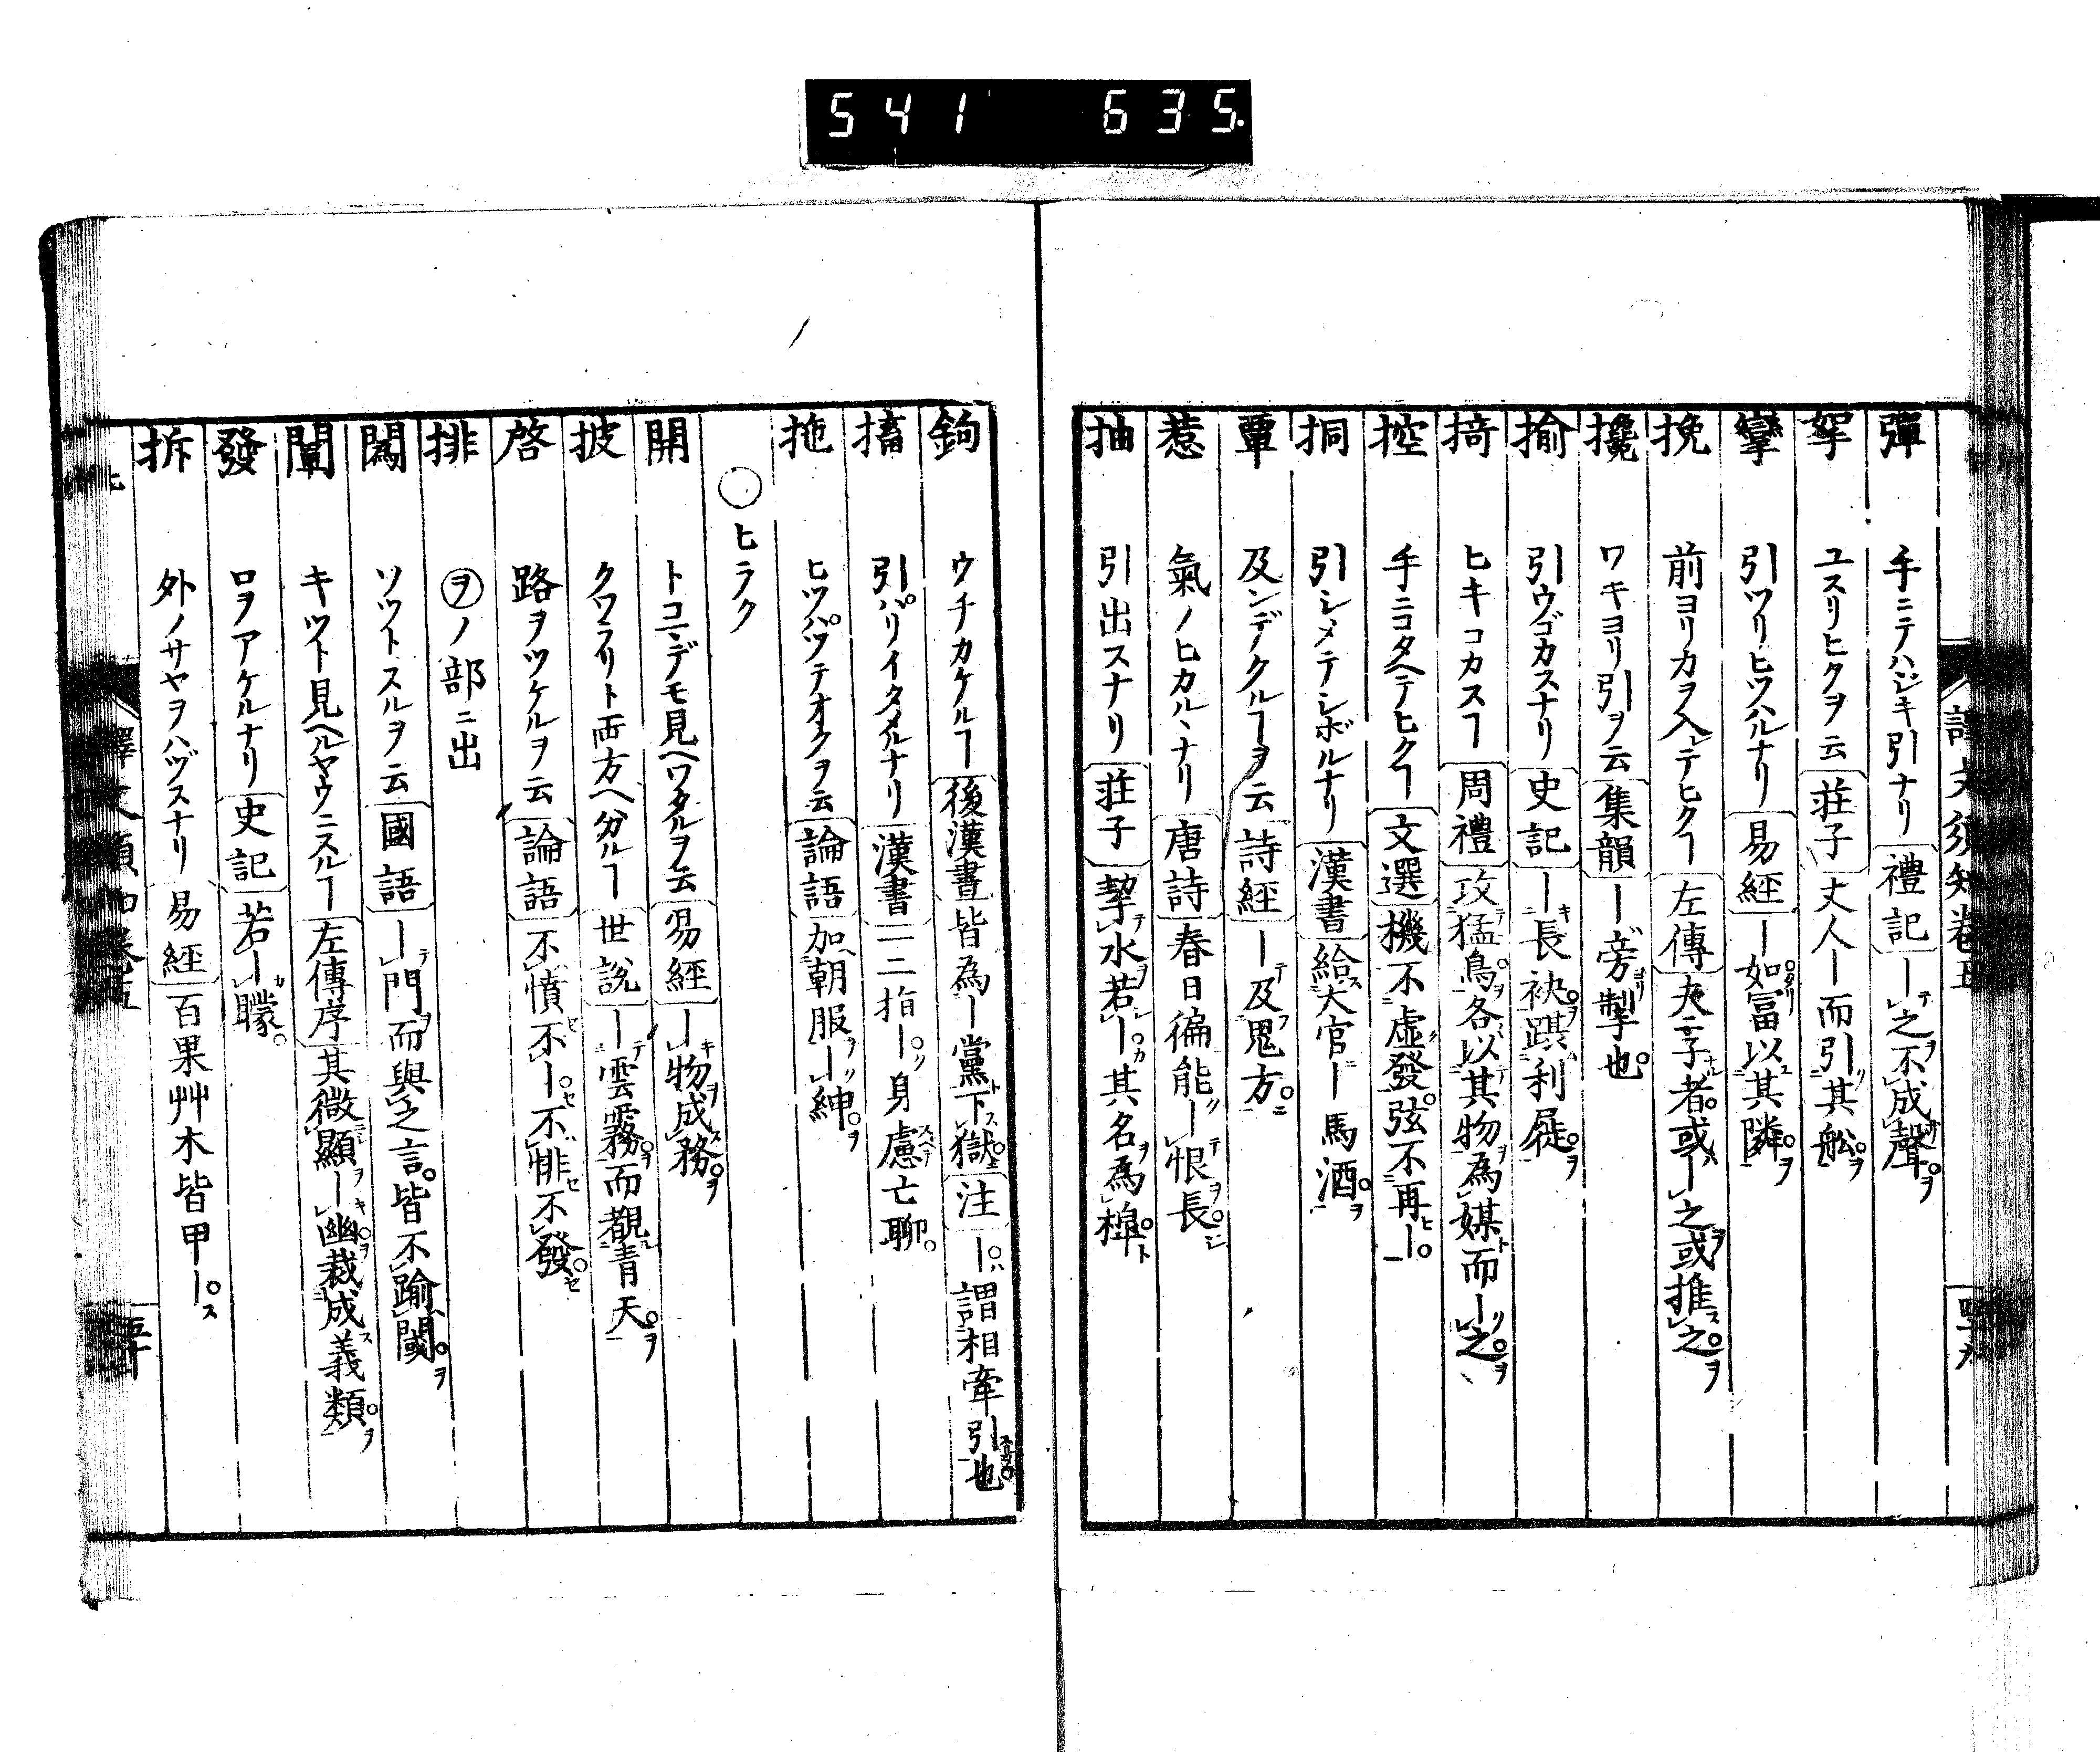 541 635
彈 手ニテハジキ引ナリ 禮記 ー之不成聲
挐 ユスリヒクヲ云 荘子 丈人ー而引其舩
攣 引ツリヒツハルナリ 易經 ー如冨以其隣
挽 前ヨリカヲ入テヒクヿ 左傳 夫二子者或ー之或推之
攙 ワキヨリ引ヲ云 集韻 ー旁掣也
揄 引ウゴカスナリ 史記 ー長袂跕利屣
掎 ヒキコカスヿ 周禮 攻猛鳥各以其物為媒而ー之
控 手ニコタヘテヒクヿ 文選 機不虛發弦不再ー
挏 引シメテシボルナリ 漢書 給大官ー馬酒
覃 及ンデクルヿヲ云 詩經 ー及鬼方
惹 氣ノヒカルヽナリ 唐詩 春日徧能ー恨長
抽 引出スナリ 荘子 挈水若ー其名為槹
鉤 ウチカケルヿ 後漢書 皆為ー黨下獄 注 ー謂相牽引也
搐 引パリイタメルナリ 漢書 一二指ー身慮亡聊
拖 ヒツパツテオクヲ云 論語 加朝服ー紳
○ヒラク
開 トコニデモ見ヘワタルヲ云 易經 ー物成務
披 クワラリト両方ヘ分ルヿ 世説 ー雲霧而覩青天
啓 路ヲツケルヲ云 論語 不憤不ー不悱不發
排 ヲノ部ニ出
闖 ソツトスルヲ云 國語 ー門而與之言皆不踰閾
闡 キツト見ヘルヤウニスルヿ 左傳序 其微顯ー幽裁成義類
發 口ヲアケルナリ 史記 若ー矇
拆 外ノサヤヲハヅスナリ 易經 百果艸木皆甲ー